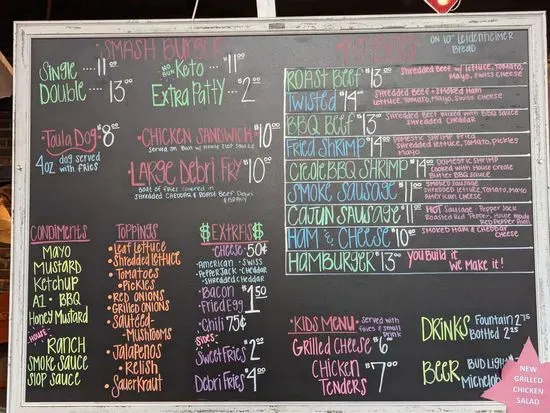 SMASH BURGER
Single ... 11⁰⁰
Double ... 13⁰⁰
NO BUN Keto ... $11⁰⁰
Extra Patty - $2⁰⁰
• Toula Dog $8⁰⁰
4oz dog served with fries
• CHICKEN SANDWICH $10⁰⁰
SERVED ON BUN w/ HOUSE SLOP SAUCE
• LARGE Debri FRY $10⁰⁰
BOAT OF FRIES COVERED IN
SHREDDED CHEDDAR & ROAST BEEF DEBRI & GRAVY
CONDIMENTS
MAYO
MUSTARD
KETCHUP
A1 • BBQ
Honey Mustard
HOUSE:
RANCH
SMOKE SAUCE
SLOP SAUCE
TOPPINGS
• Leaf Lettuce
• Shredded Lettuce
• Tomatoes
• Pickles
• RED ONIONS
• GRILLED ONIONS
• Sauteed
- Mushrooms
• Jalapeños
• Relish
• Sauerkraut
$EXTRAS$
• CHEESE • 50¢
• American • Swiss
• Pepper Jack • Cheddar
• Shredded Cheddar
• Bacon
• Fried Egg $1.50
• Chili 75¢
SIDES:
Sweet Fries $2⁰⁰
Debri Fries $4⁰⁰
ON 10" Leidenheimer BREAD
ROAST BEEF $13⁰⁰ Shredded Beef w/ LETTUCE, TOMATO, MAYO, SWISS CHEESE
TWISTED $14⁰⁰ Shredded Beef + Smoked Ham LETTUCE, TOMATO, MAYO, SWISS CHEESE
BBQ BEEF $13⁰⁰ Shredded Beef mixed with BBQ SAUCE SHREDDED CHEDDAR
FRIED SHRIMP $14⁰⁰ DOMESTIC SHRIMP FRIED Shredded LETTUCE, TOMATO, PICKLES MAYO
CREOLE BBQ SHRIMP $14⁰⁰ DOMESTIC SHRIMP COOKED WITH HOUSE CREOLE BUTTER BBQ SAUCE
SMOKE SAUSAGE $11⁰⁰ SMOKED SAUSAGE SHREDDED LETTUCE, TOMATO, MAYO AMERICAN CHEESE
CAJUN SAUSAGE $11⁰⁰ HOT SAUSAGE • PEPPER JACK Roasted Red Pepper, House Made Red Pepper Aioli
HAM & CHEESE $10⁰⁰ SMOKED HAM & CHEDDAR CHEESE
HAMBURGER $13⁰⁰ YOU Build it We Make it!
• KIDS MENU • SERVED WITH FRIES & SMALL DRINK
GRILLED CHEESE $6⁰⁰
CHICKEN TENDERS $7⁰⁰
DRINKS Fountain 2.75
Bottled 2.25
BEER Bud Light
Michelob
NEW
GRILLED
CHICKEN
SALAD